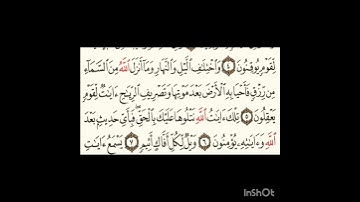 لِّقَوْمٍ يُوقِنُونَ ٤ وَٱخْتِلَٰفِ ٱلَّيْلِ وَٱلنَّهَارِ وَمَآ أَنزَلَ ٱللَّهُ مِنَ ٱلسَّمَآءِ
مِن رِّزْقٍ فَأَحْيَا بِهِ ٱلْأَرْضَ بَعْدَ مَوْتِهَا وَتَصْرِيفِ ٱلرِّيَٰحِ ءَايَٰتٌ لِّقَوْمٍ
يَعْقِلُونَ ٥ تِلْكَ ءَايَٰتُ ٱللَّهِ نَتْلُوهَا عَلَيْكَ بِٱلْحَقِّ فَبِأَىِّ حَدِيثٍۭ بَعْدَ
ٱللَّهِ وَءَايَٰتِهِۦ يُؤْمِنُونَ ٦ وَيْلٌ لِّكُلِّ أَفَّاكٍ أَثِيمٍ ٧ يَسْمَعُ ءَايَٰتِ
InShOt